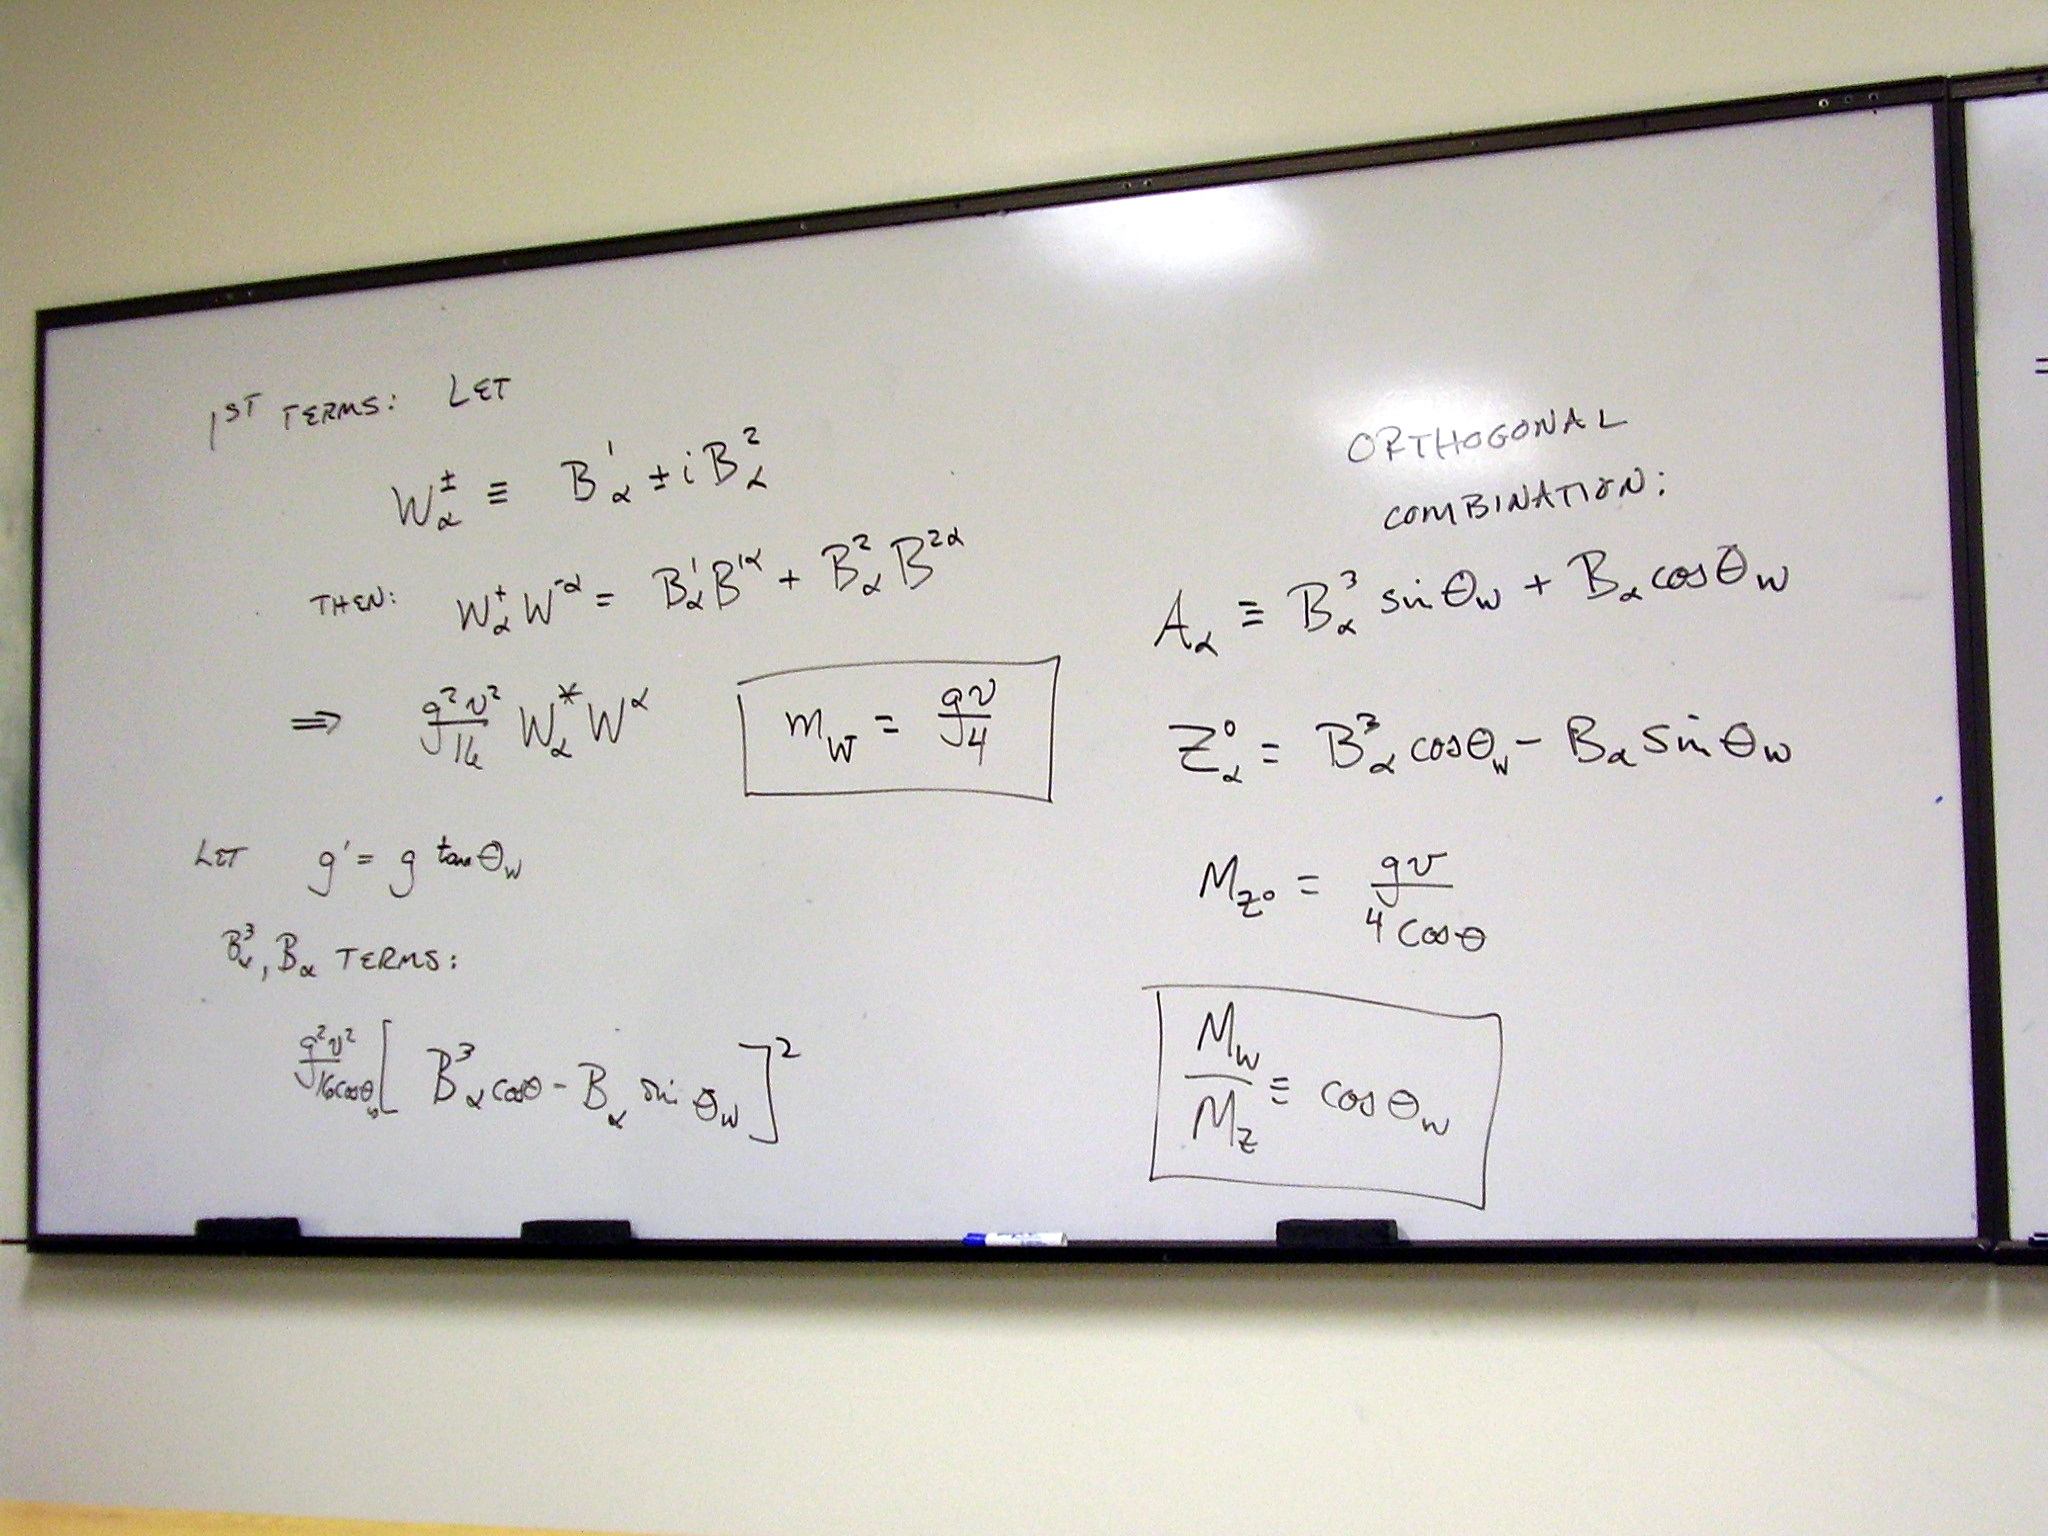 1ST TERMS: LET
W_α^± ≡ B_α^1 ± i B_α^2
THEN: W_α^+ W^{-α} = B_α^1 B^{1α} + B_α^2 B^{2α}
⇒ g²v²/16 W_α^* W^α
m_W = gv/4
LET g' = g tan θ_W
B_α^3, B_α TERMS:
g²v²/16cosθ_w [ B_α^3 cosθ - B_α sin θ_W ]²
ORTHOGONAL
COMBINATION:
A_α ≡ B_α^3 sin θ_W + B_α cos θ_W
Z_α^0 = B_α^3 cosθ_w - B_α sin θ_W
M_{Z^0} = gv/4 cosθ
M_W/M_Z ≡ cos θ_W
=